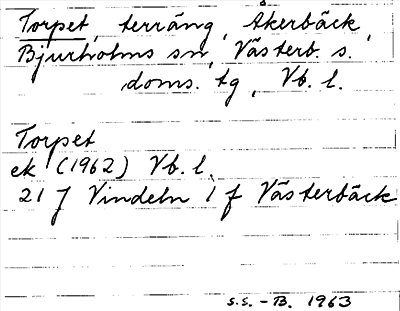 Torpet, terräng, Åkerbäck,
Bjurholms sn, Västerb. s.
doms. tg, Vb. l.
Torpet
ek (1962) Vb. l.
21 J Vindeln 1 f Västerbäck
S.S. - B. 1963